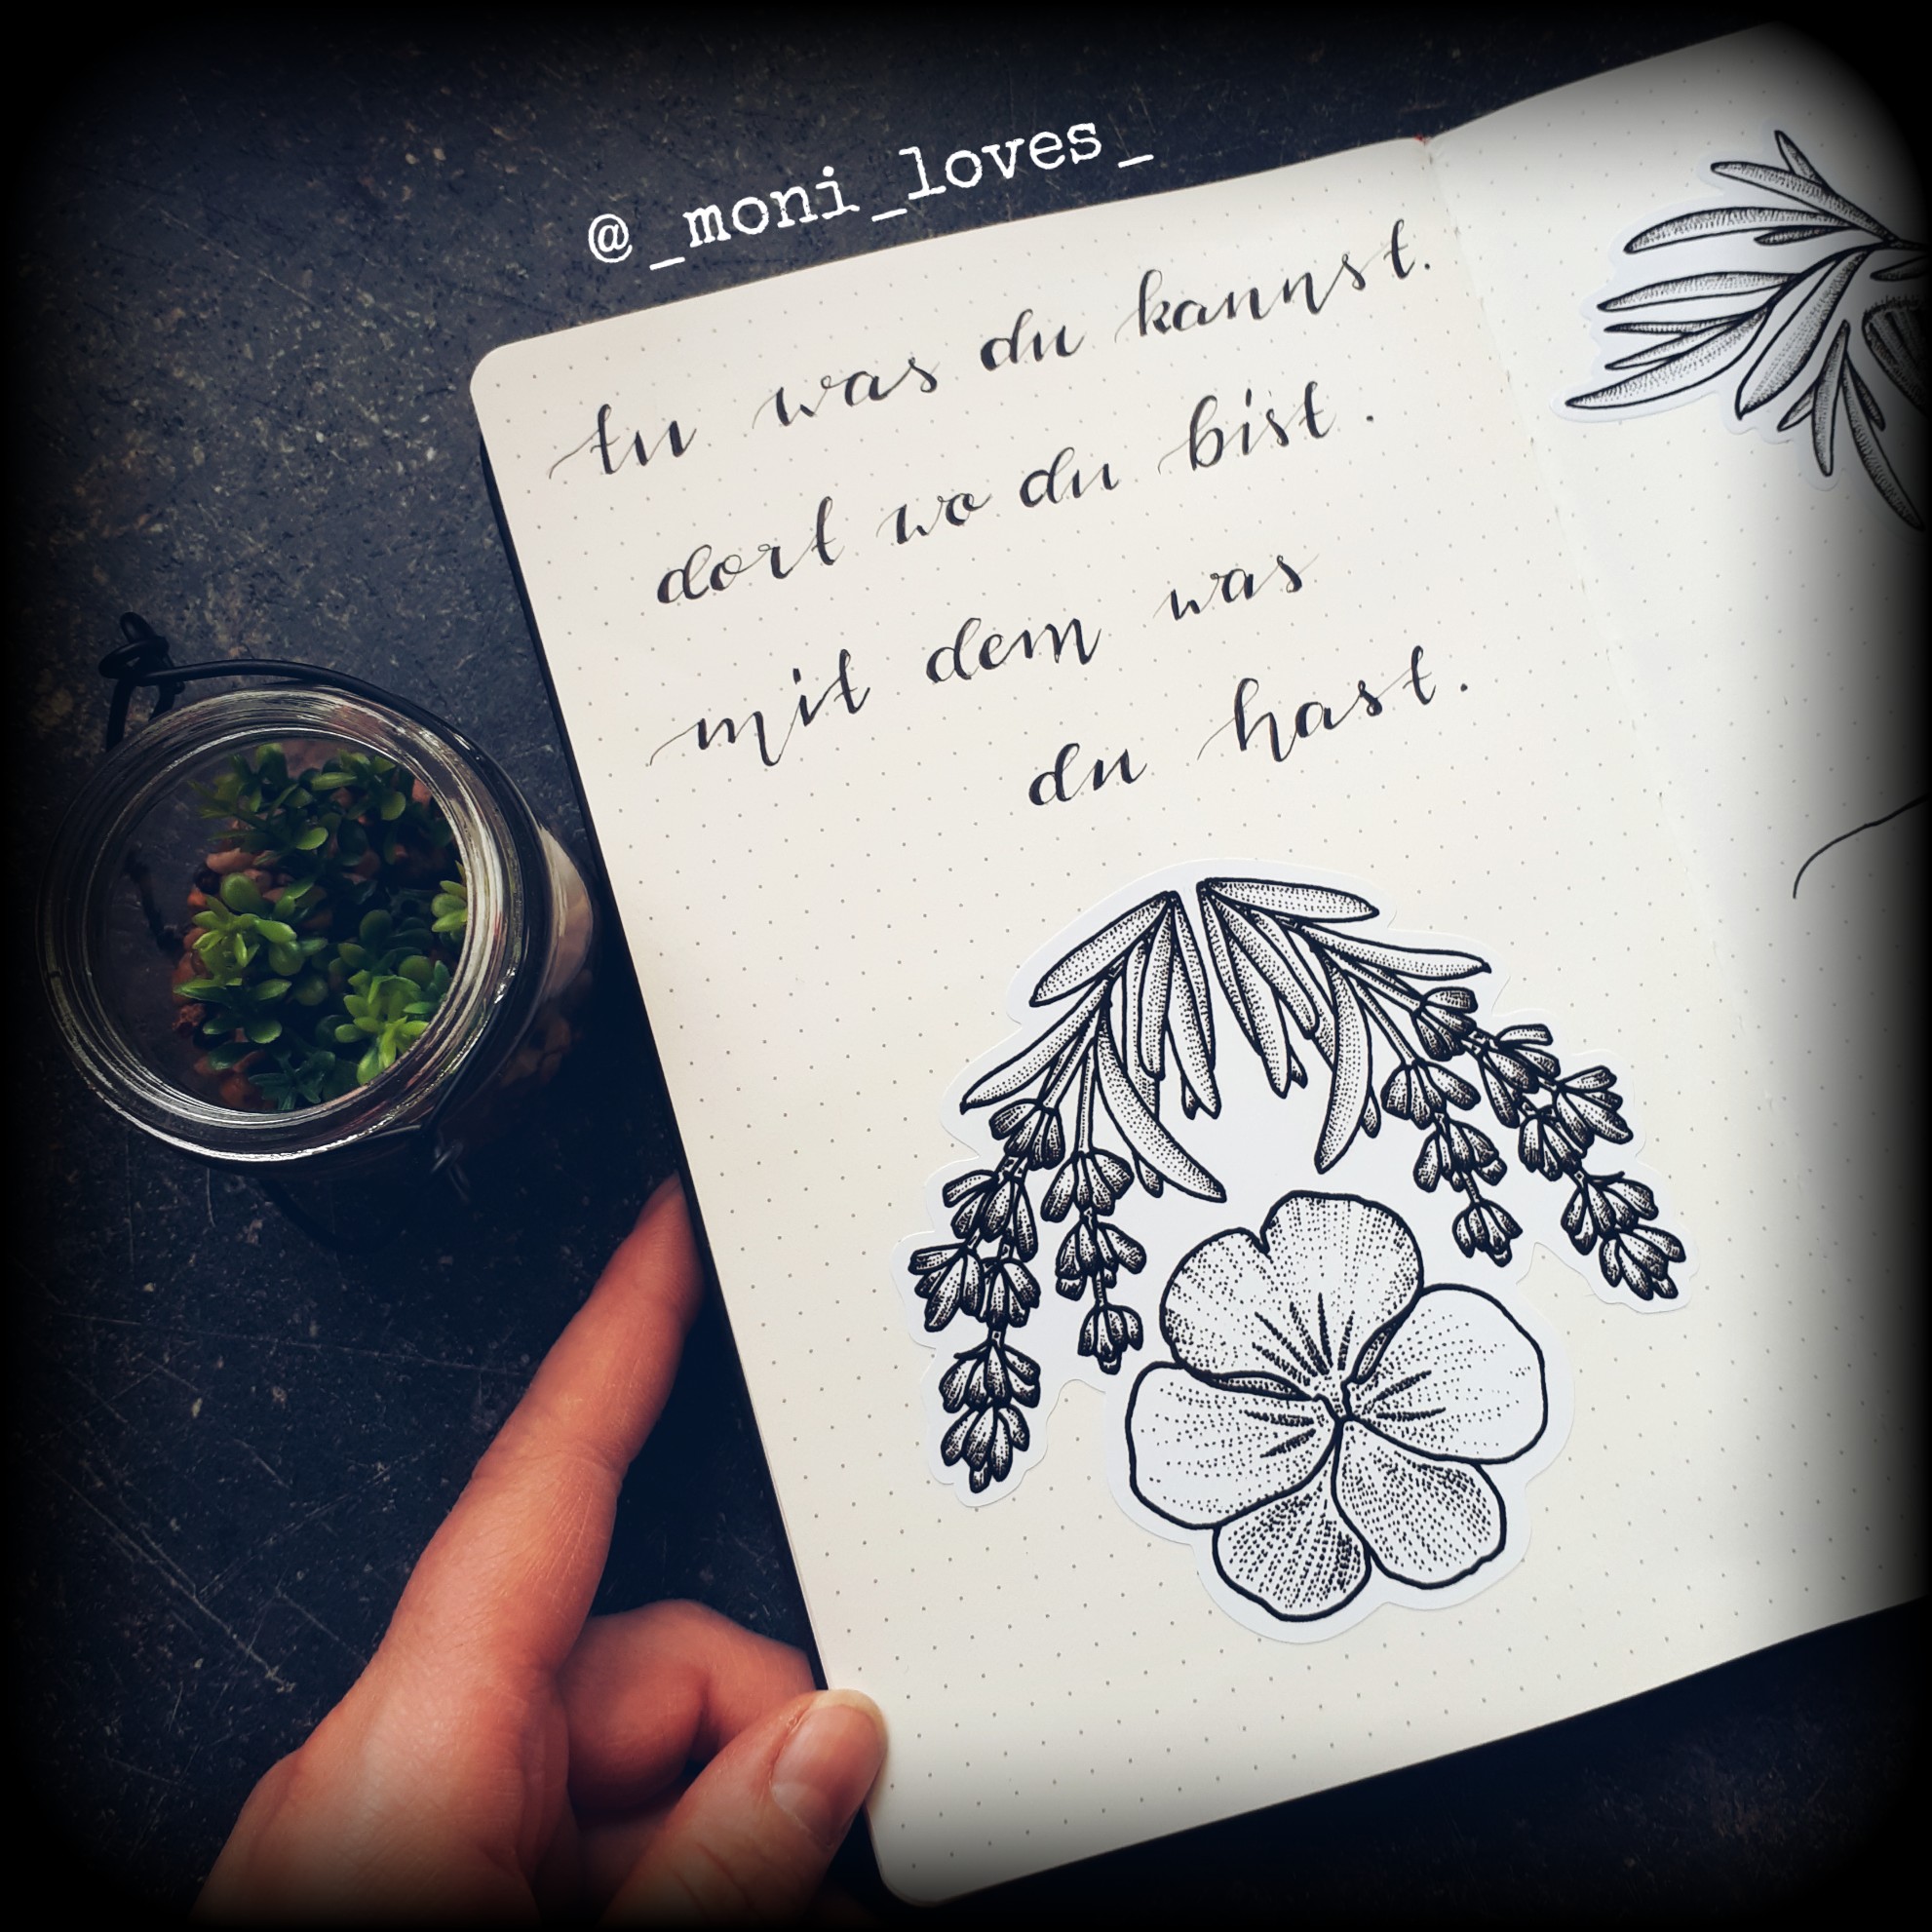 @_moni_loves_
tu was du kannst.
dort wo du bist.
mit dem was
du hast.